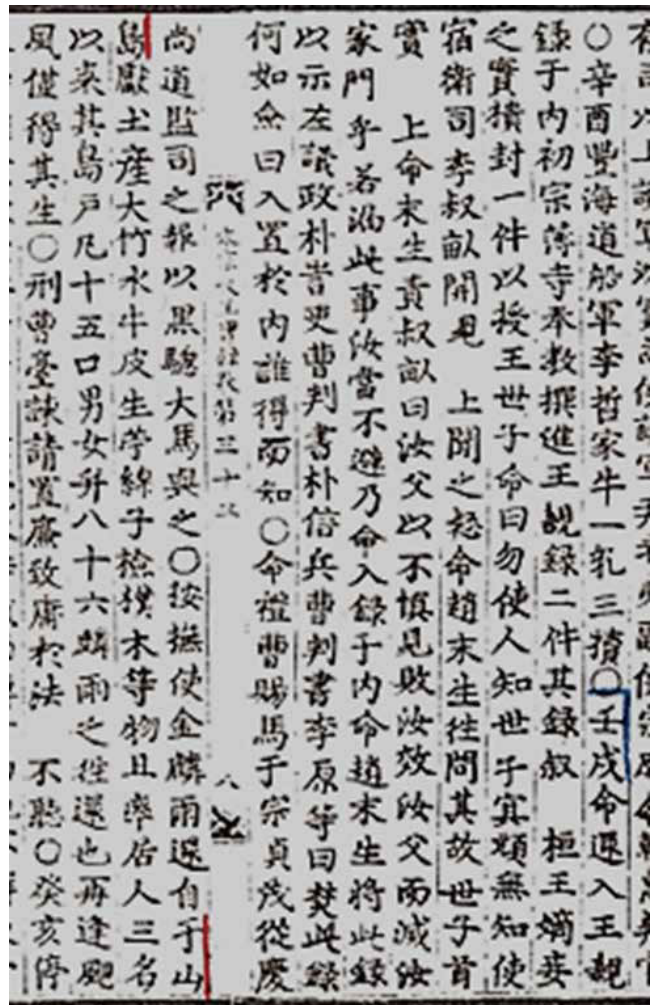 ○辛酉豐海道船軍李哲家牛一乳三犢○壬戌命還入王親
錄于內初宗簿寺奉敎撰進王親錄二件其錄叙　桓王嫡妾
之實橫封一件以授王世子命曰勿使人知世子冝頗無知使
宿衛司李叔畝開見　上聞之秘命趙末生往問其故世子首
實　上命末生責叔畝曰汝父以不愼見敗汝效汝父而滅汝
家門乎若漏此事汝當不避乃命入錄于內命趙末生將此錄
以示左議政朴訔吏曹判書朴信兵曹判書李原等曰焚此錄
何如僉曰入置於內誰得而知○命禮曹賜馬于宗貞茂從慶
卷第三十三　八
尚道監司之報以黑驄大馬與之○按撫使金麟雨還自于山
島獻土産大竹水牛皮生苧綿子檢樸木等物且率居人三名
以來其島戶凡十五口男女幷八十六麟雨之徃還也再逢颶
風僅得其生○刑曹臺諫請置廉致庸於法　不聽○癸亥停